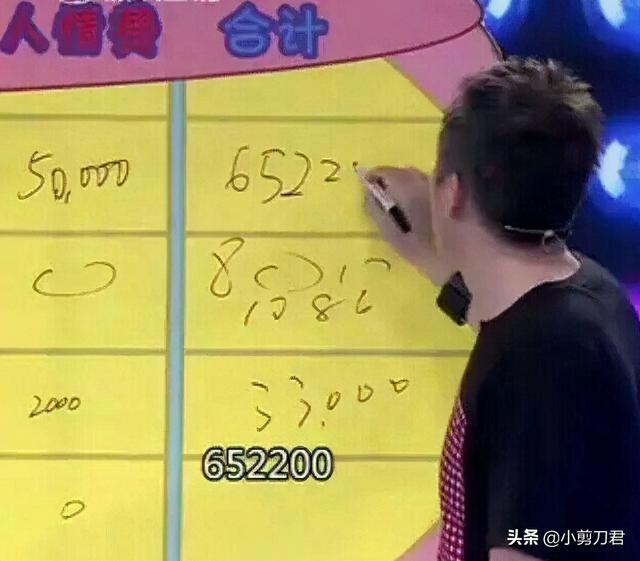 人情费 合计
50,000 6522
0
2000 33,000
652200
0
头条 @小剪刀君